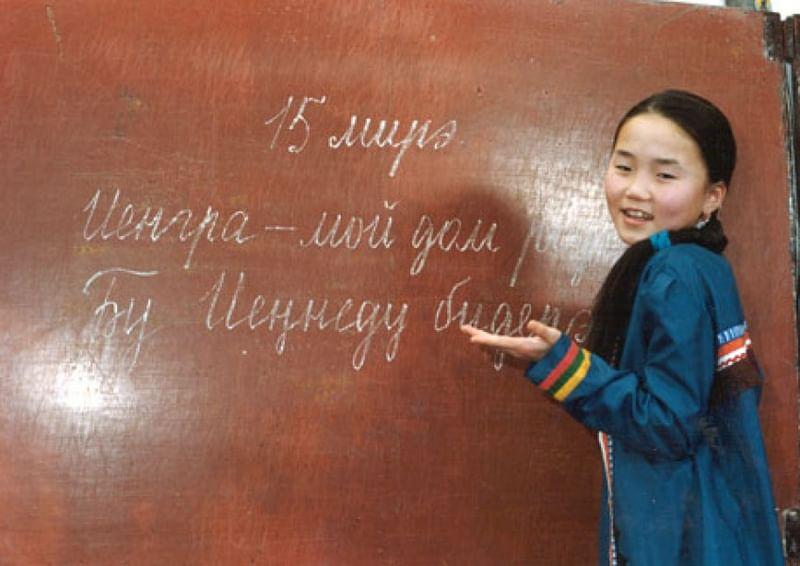 15 мирэ.
Иенгра – мой дом
Бу Иеӊнеду бидерэ